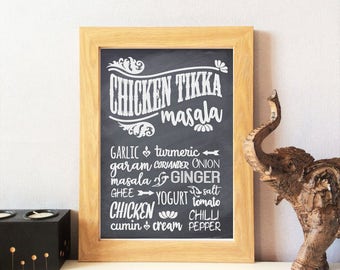 CHICKEN TIKKA
masala
GARLIC turmeric
garam CORIANDER ONION
masala & GINGER
GHEE YOGURT & salt
tomato
CHICKEN CHILLI
cumin cream PEPPER